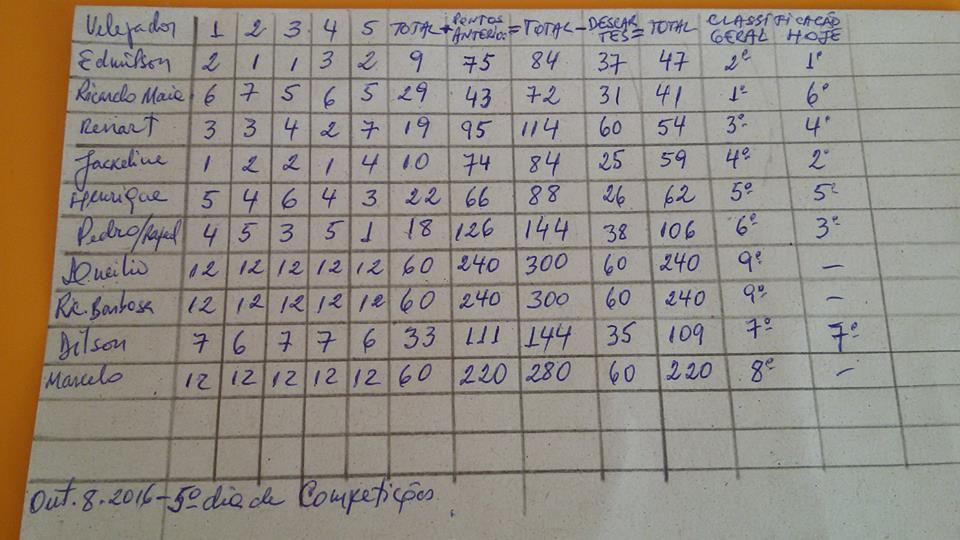 Velejador 1 2 3 4 5 TOTAL + PONTOS ANTERIOR = TOTAL - DESCARTES = TOTAL CLASSIFICAÇÃO GERAL HOJE
Edmilson 2 1 1 3 2 9 75 84 37 47 2º 1º
Ricardo Maia 6 7 5 6 5 29 43 72 31 41 1º 6º
Renart 3 3 4 2 7 19 95 114 60 54 3º 4º
Jackeline 1 2 2 1 4 10 74 84 25 59 4º 2º
Henrique 5 4 6 4 3 22 66 88 26 62 5º 5º
Pedro/Rafael 4 5 3 5 1 18 126 144 38 106 6º 3º
12 12 12 12 12 60 240 300 60 240 9º -
Ric. Barbosa 12 12 12 12 12 60 240 300 60 240 9º -
Dilson 7 6 7 7 6 33 111 144 35 109 7º 7º
Marcelo 12 12 12 12 12 60 220 280 60 220 8º -
Out. 8. 2016 - 5º dia de Competições